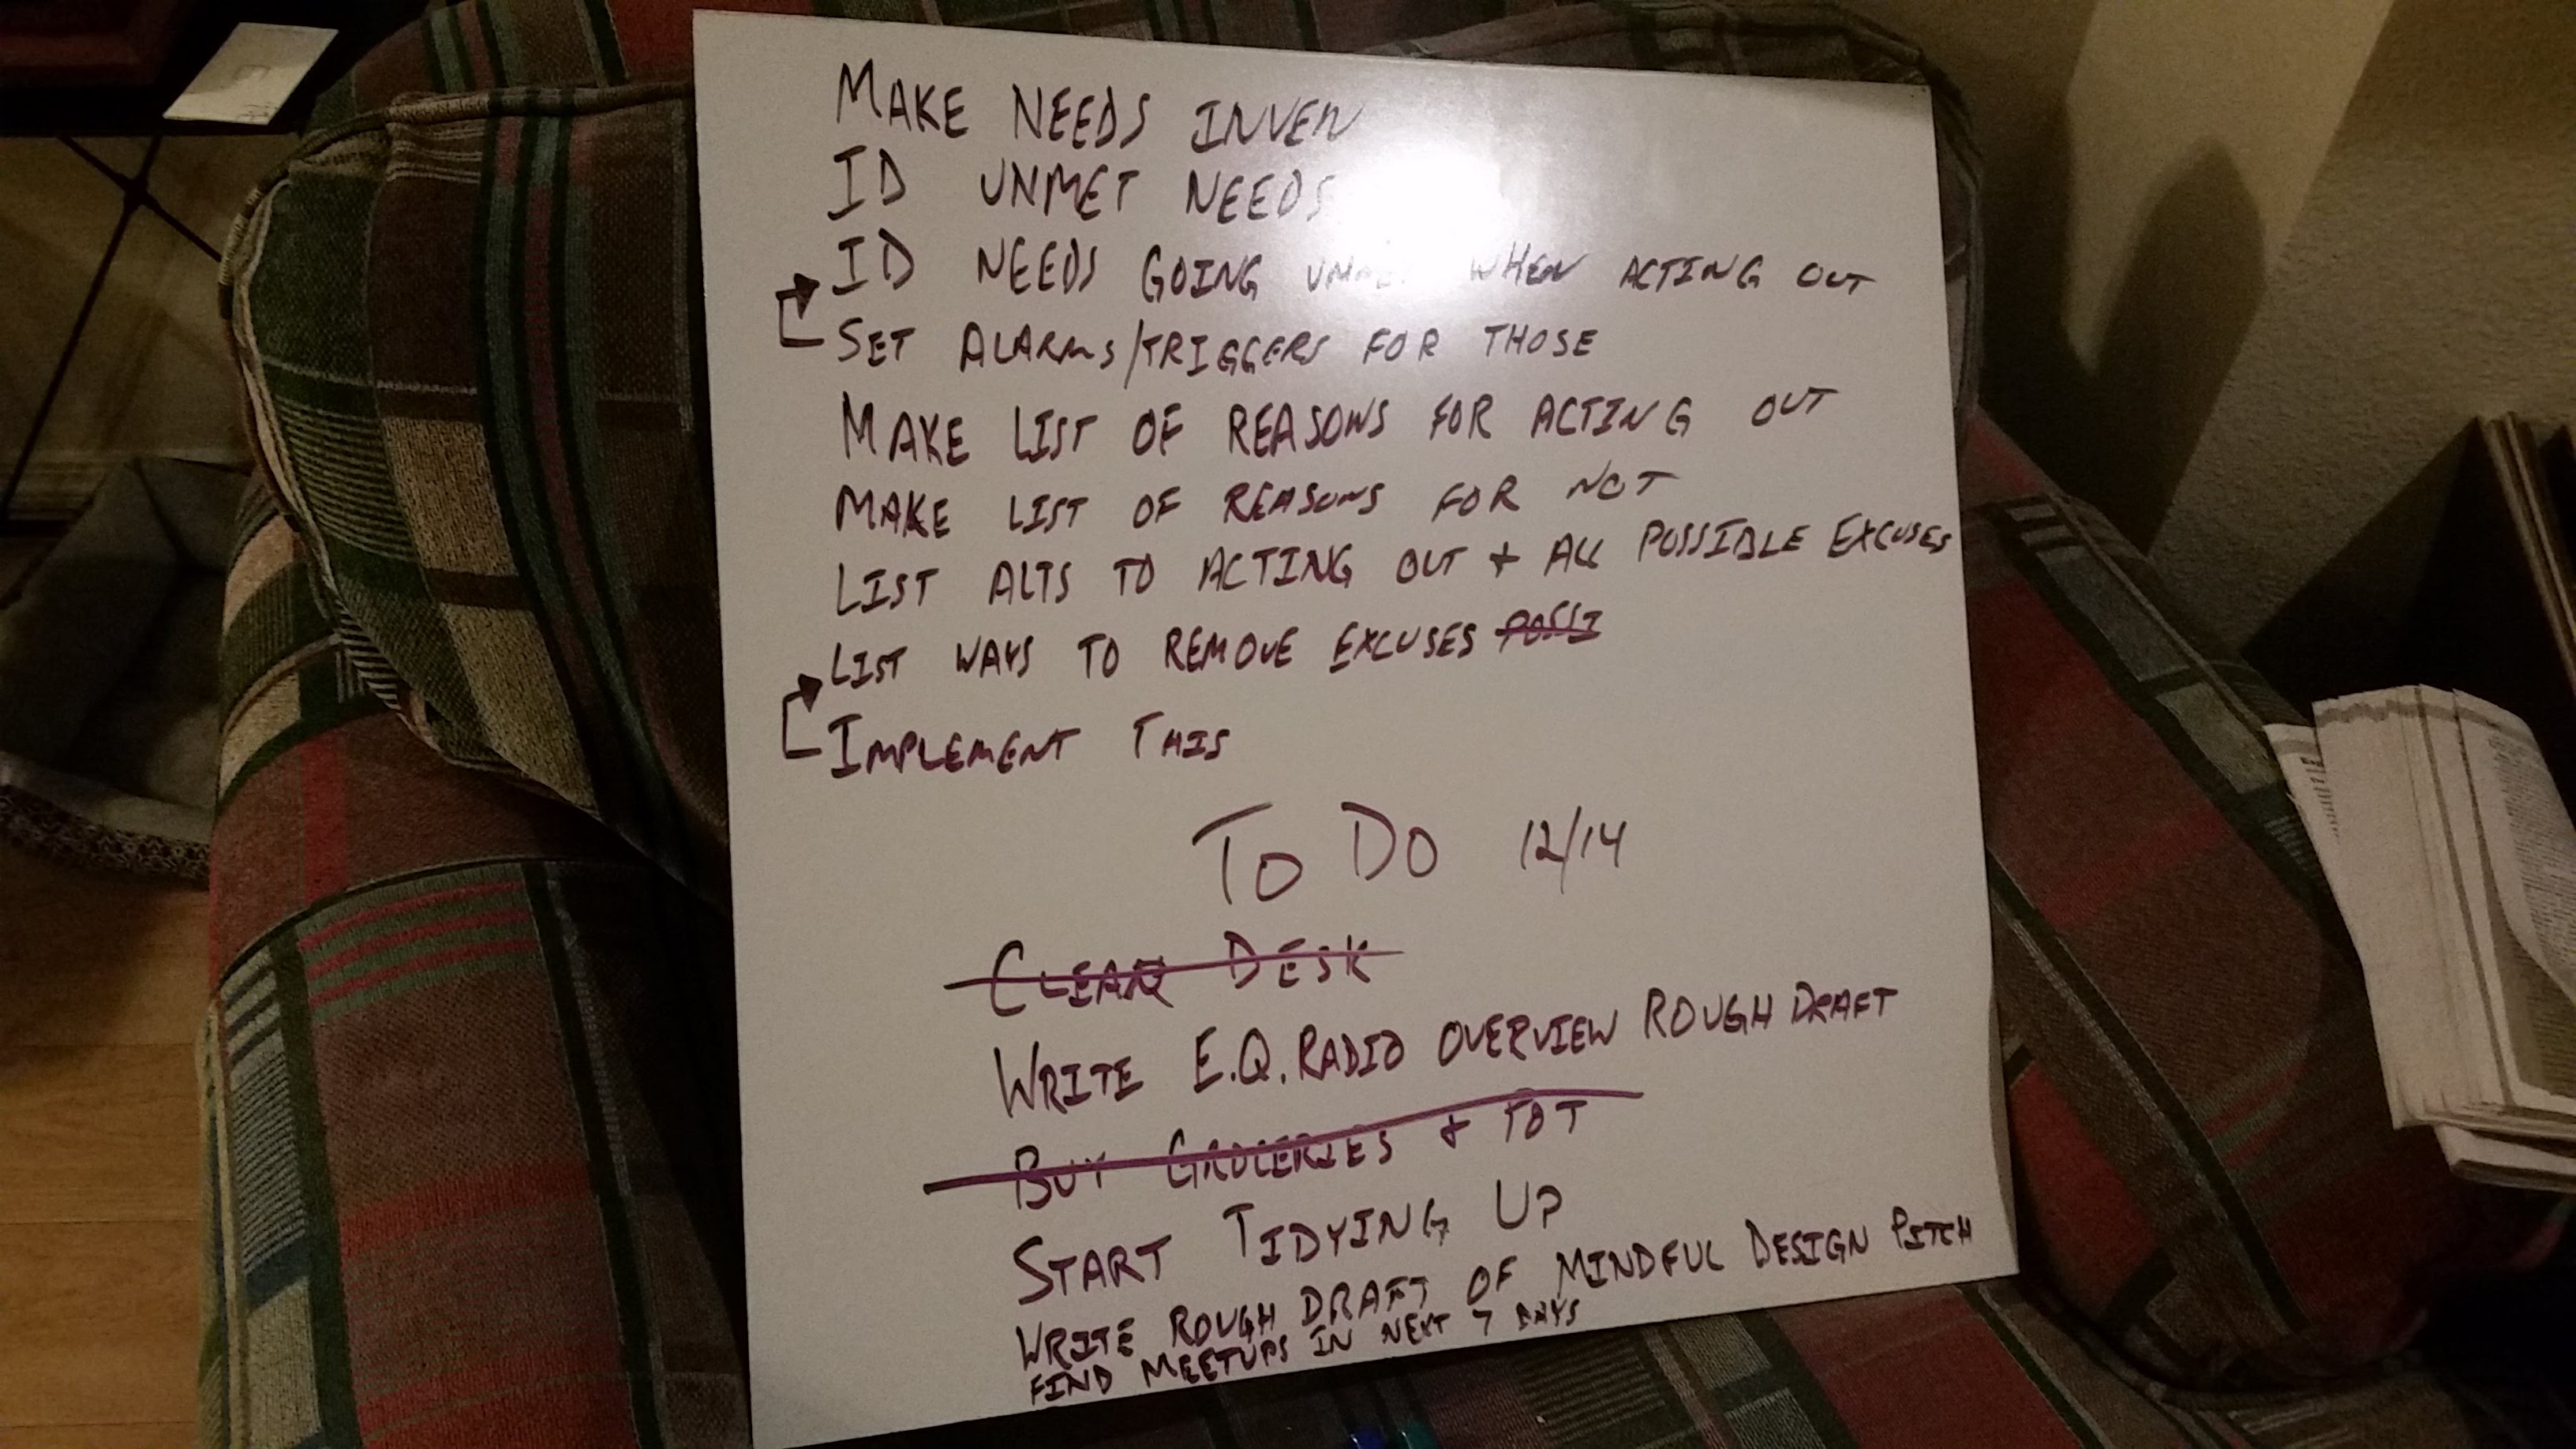 MAKE NEEDS INVEN
ID UNMET NEEDS
ID NEEDS GOING WHEN ACTING OUT
SET ALARMS/TRIGGERS FOR THOSE
MAKE LIST OF REASONS FOR ACTING OUT
MAKE LIST OF REASONS FOR NOT
LIST ALTS TO ACTING OUT + ALL POSSIBLE EXCUSES
LIST WAYS TO REMOVE EXCUSES POSSI
IMPLEMENT THIS
TO DO 12/14
CLEAR DESK
WRITE E.Q. RADIO OVERVIEW ROUGH DRAFT
BUY GROCERIES + TOT
START TIDYING UP
WRITE ROUGH DRAFT OF MINDFUL DESIGN PITCH
FIND MEETUPS IN NEXT 7 DAYS